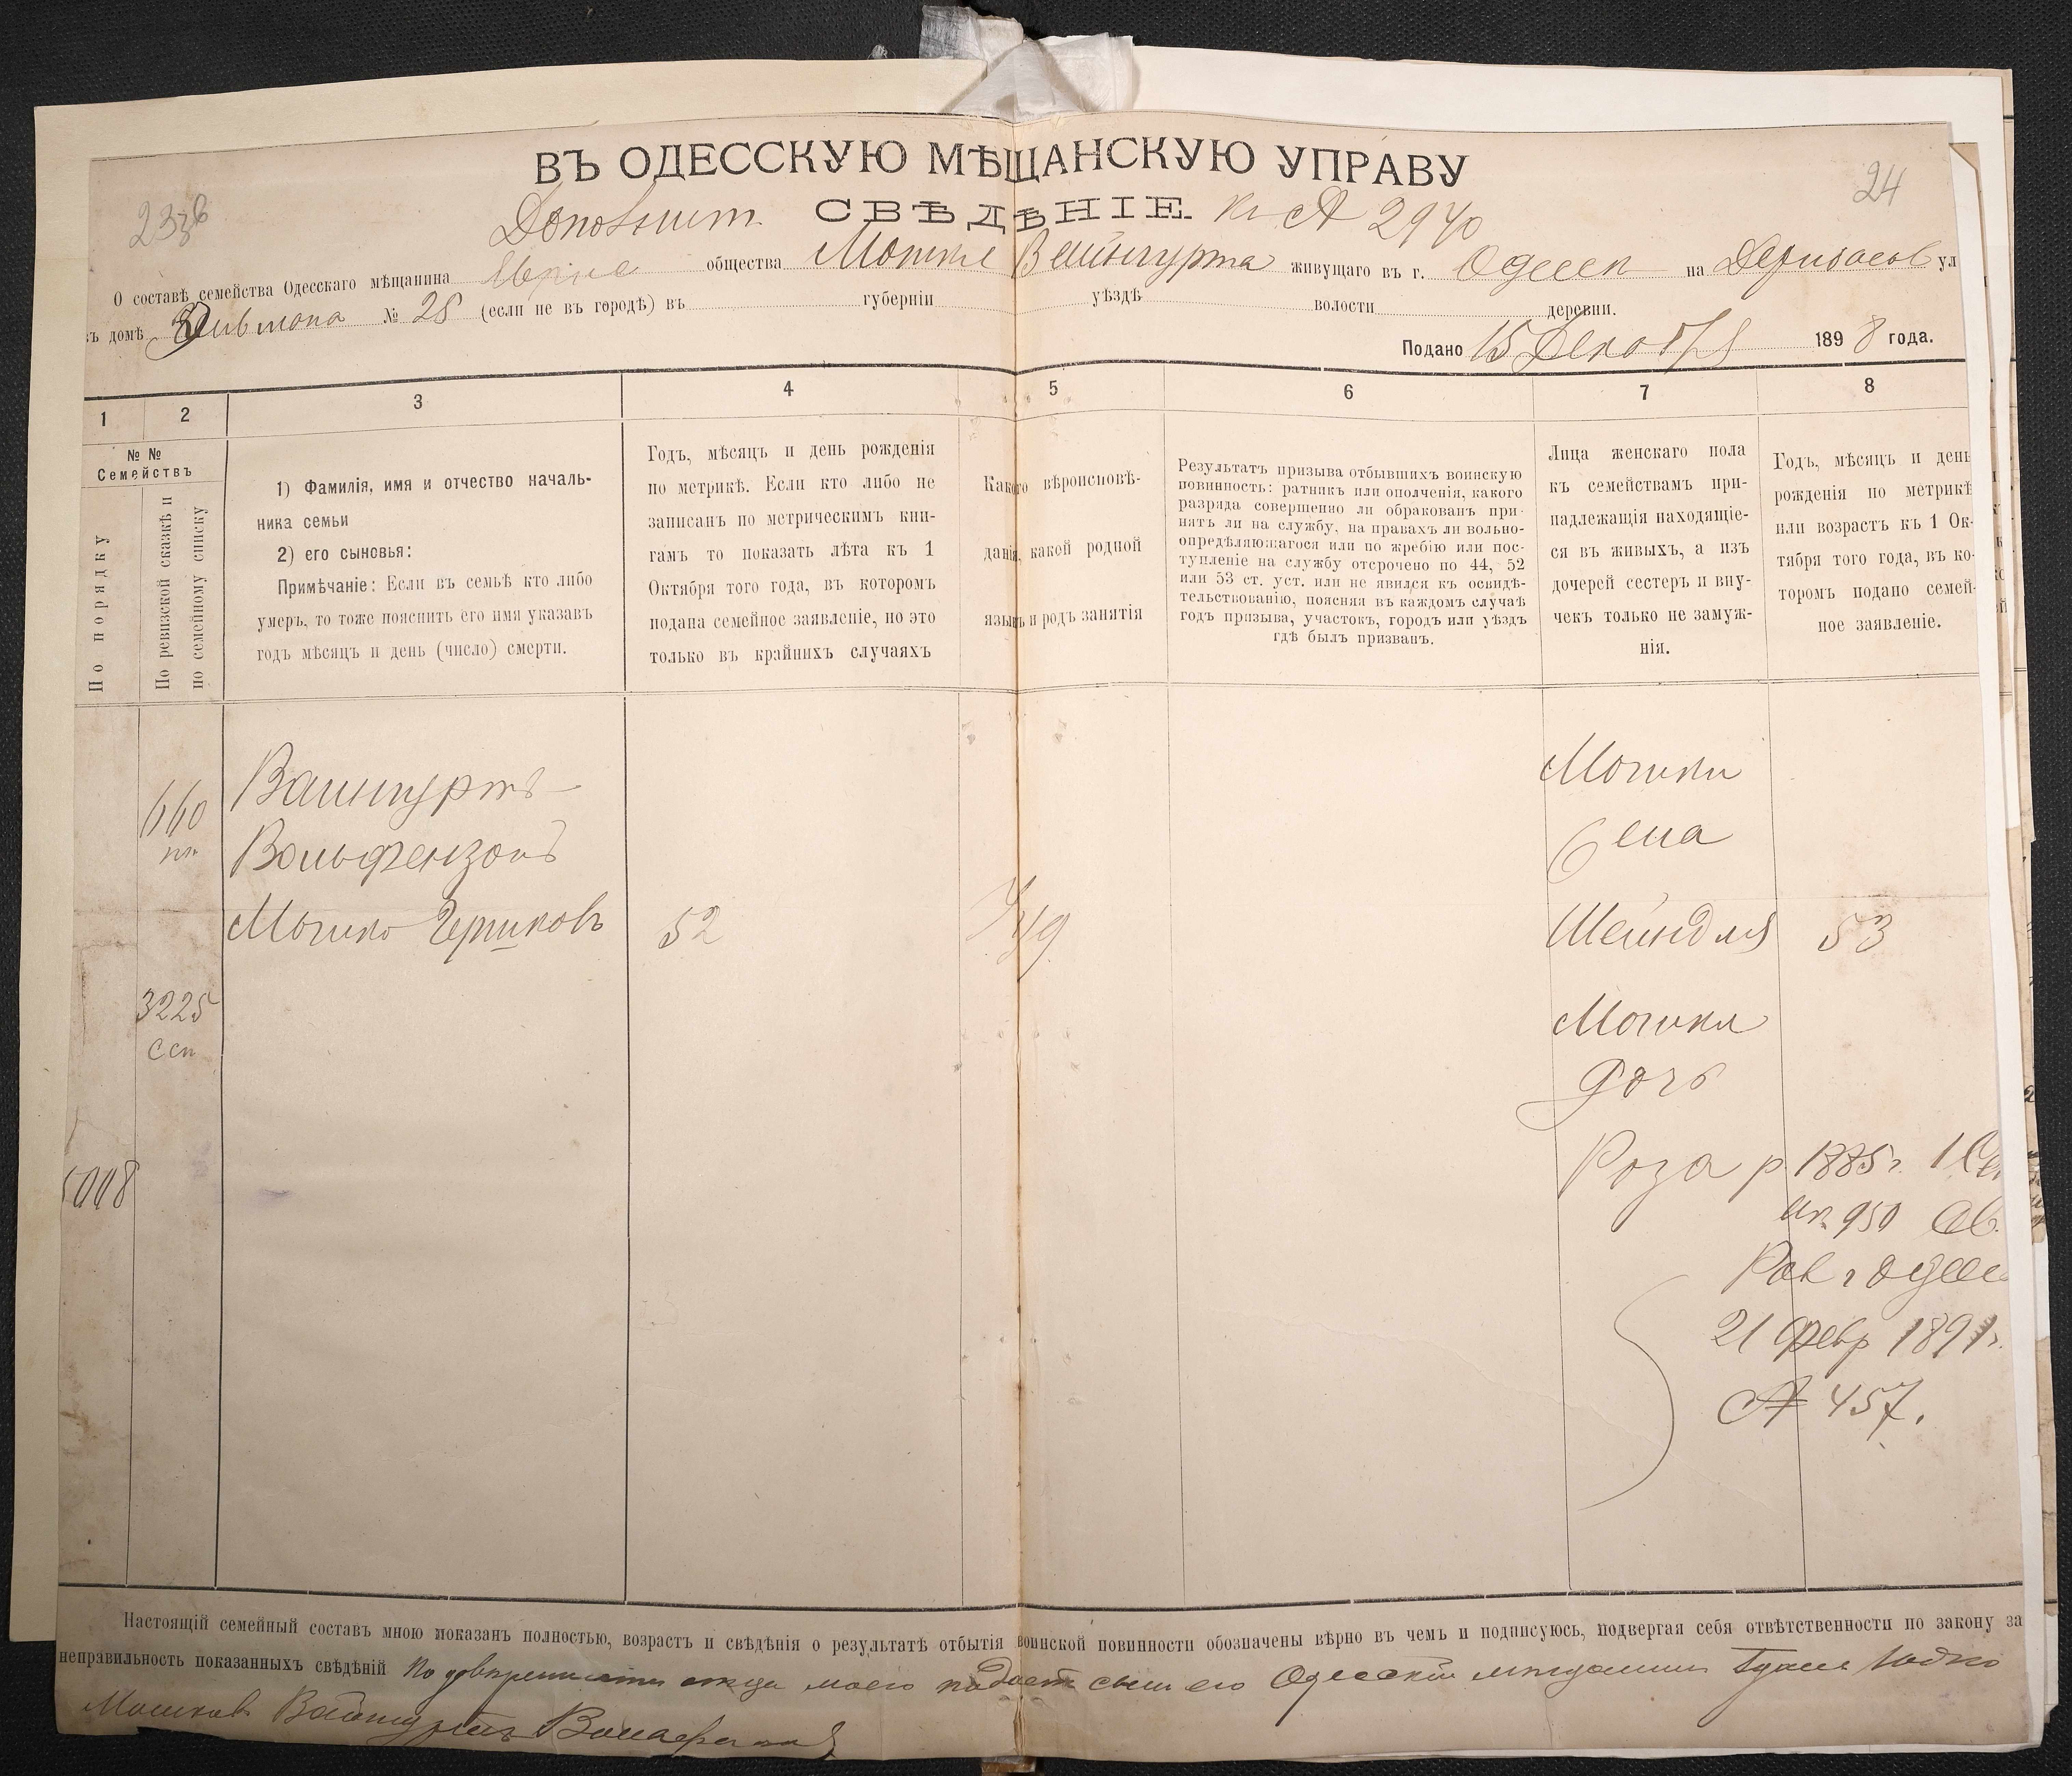 ВЪ ОДЕССКУЮ МѢЩАНСКУЮ УПРАВУ
24
СВѢДѢНІЕ. к № 2940
О составѣ семейства Одесскаго мѣщанина общества Мошки Вайнгурта живущаго въ г. Одессѣ на Дерибасов ул
въ домѣ № 28 (если не въ городѣ) въ губерніи уѣздѣ волости деревни.
Подано 15 Декабря 1898 года.
1 2 3 4 5 6 7 8
№ №
Семействъ
По порядку
По ревизской сказкѣ и
по семейному списку
1) Фамилія, имя и отчество началь-
ника семьи
2) его сыновья:
Примѣчаніе: Если въ семьѣ кто либо
умеръ, то тоже пояснить его имя указавъ
годъ мѣсяцъ и день (число) смерти.
Годъ, мѣсяцъ и день рожденія
по метрикѣ. Если кто либо не
записанъ по метрическимъ кни-
гамъ то показать лѣта къ 1
Октября того года, въ которомъ
подана семейное заявленіе, но это
только въ крайнихъ случаяхъ
Какого вѣроисповѣ-
данія, какой родной
языкъ и родъ занятія
Результатъ призыва отбывшихъ воинскую
повинность: ратникъ или ополченія, какого
разряда совершенно ли обракованъ при-
нятъ ли на службу, на правахъ ли вольно-
опредѣляющагося или по жребію или пос-
тупленіе на службу отсрочено по 44, 52
или 53 ст. уст. или не явился къ освидѣ-
тельствованію, поясняя въ каждомъ случаѣ
годъ призыва, участокъ, городъ или уѣздъ
гдѣ былъ призванъ.
Лица женскаго пола
къ семействамъ при-
надлежащія находящіе-
ся въ живыхъ, а изъ
дочерей сестеръ и вну-
чекъ только не замуж-
нія.
Годъ, мѣсяцъ и день
рожденія по метрикѣ
или возрастъ къ 1 Ок-
тября того года, въ ко-
торомъ подано семей-
ное заявленіе.
Вайнгуртъ
Вольфензонъ
Мошко Гершковъ 52
660
3225
ссп
Мошки
Жена
Шейндля 53
Мошки
дочь
Роза р 1885г. 1 Сен
950 Св.
Рав г Одесс
21 Февр 1891г.
№ 457.
Настоящій семейный составъ мною показанъ полностью, возрастъ и свѣдѣнія о результатѣ отбытія воинской повинности обозначены вѣрно въ чемъ и подписуюсь, подвергая себя отвѣтственности по закону за
неправильность показанныхъ свѣдѣній отца моего сынъ его Одесскій мѣщанинъ Юдко
Мошковъ Вайнгуртъ